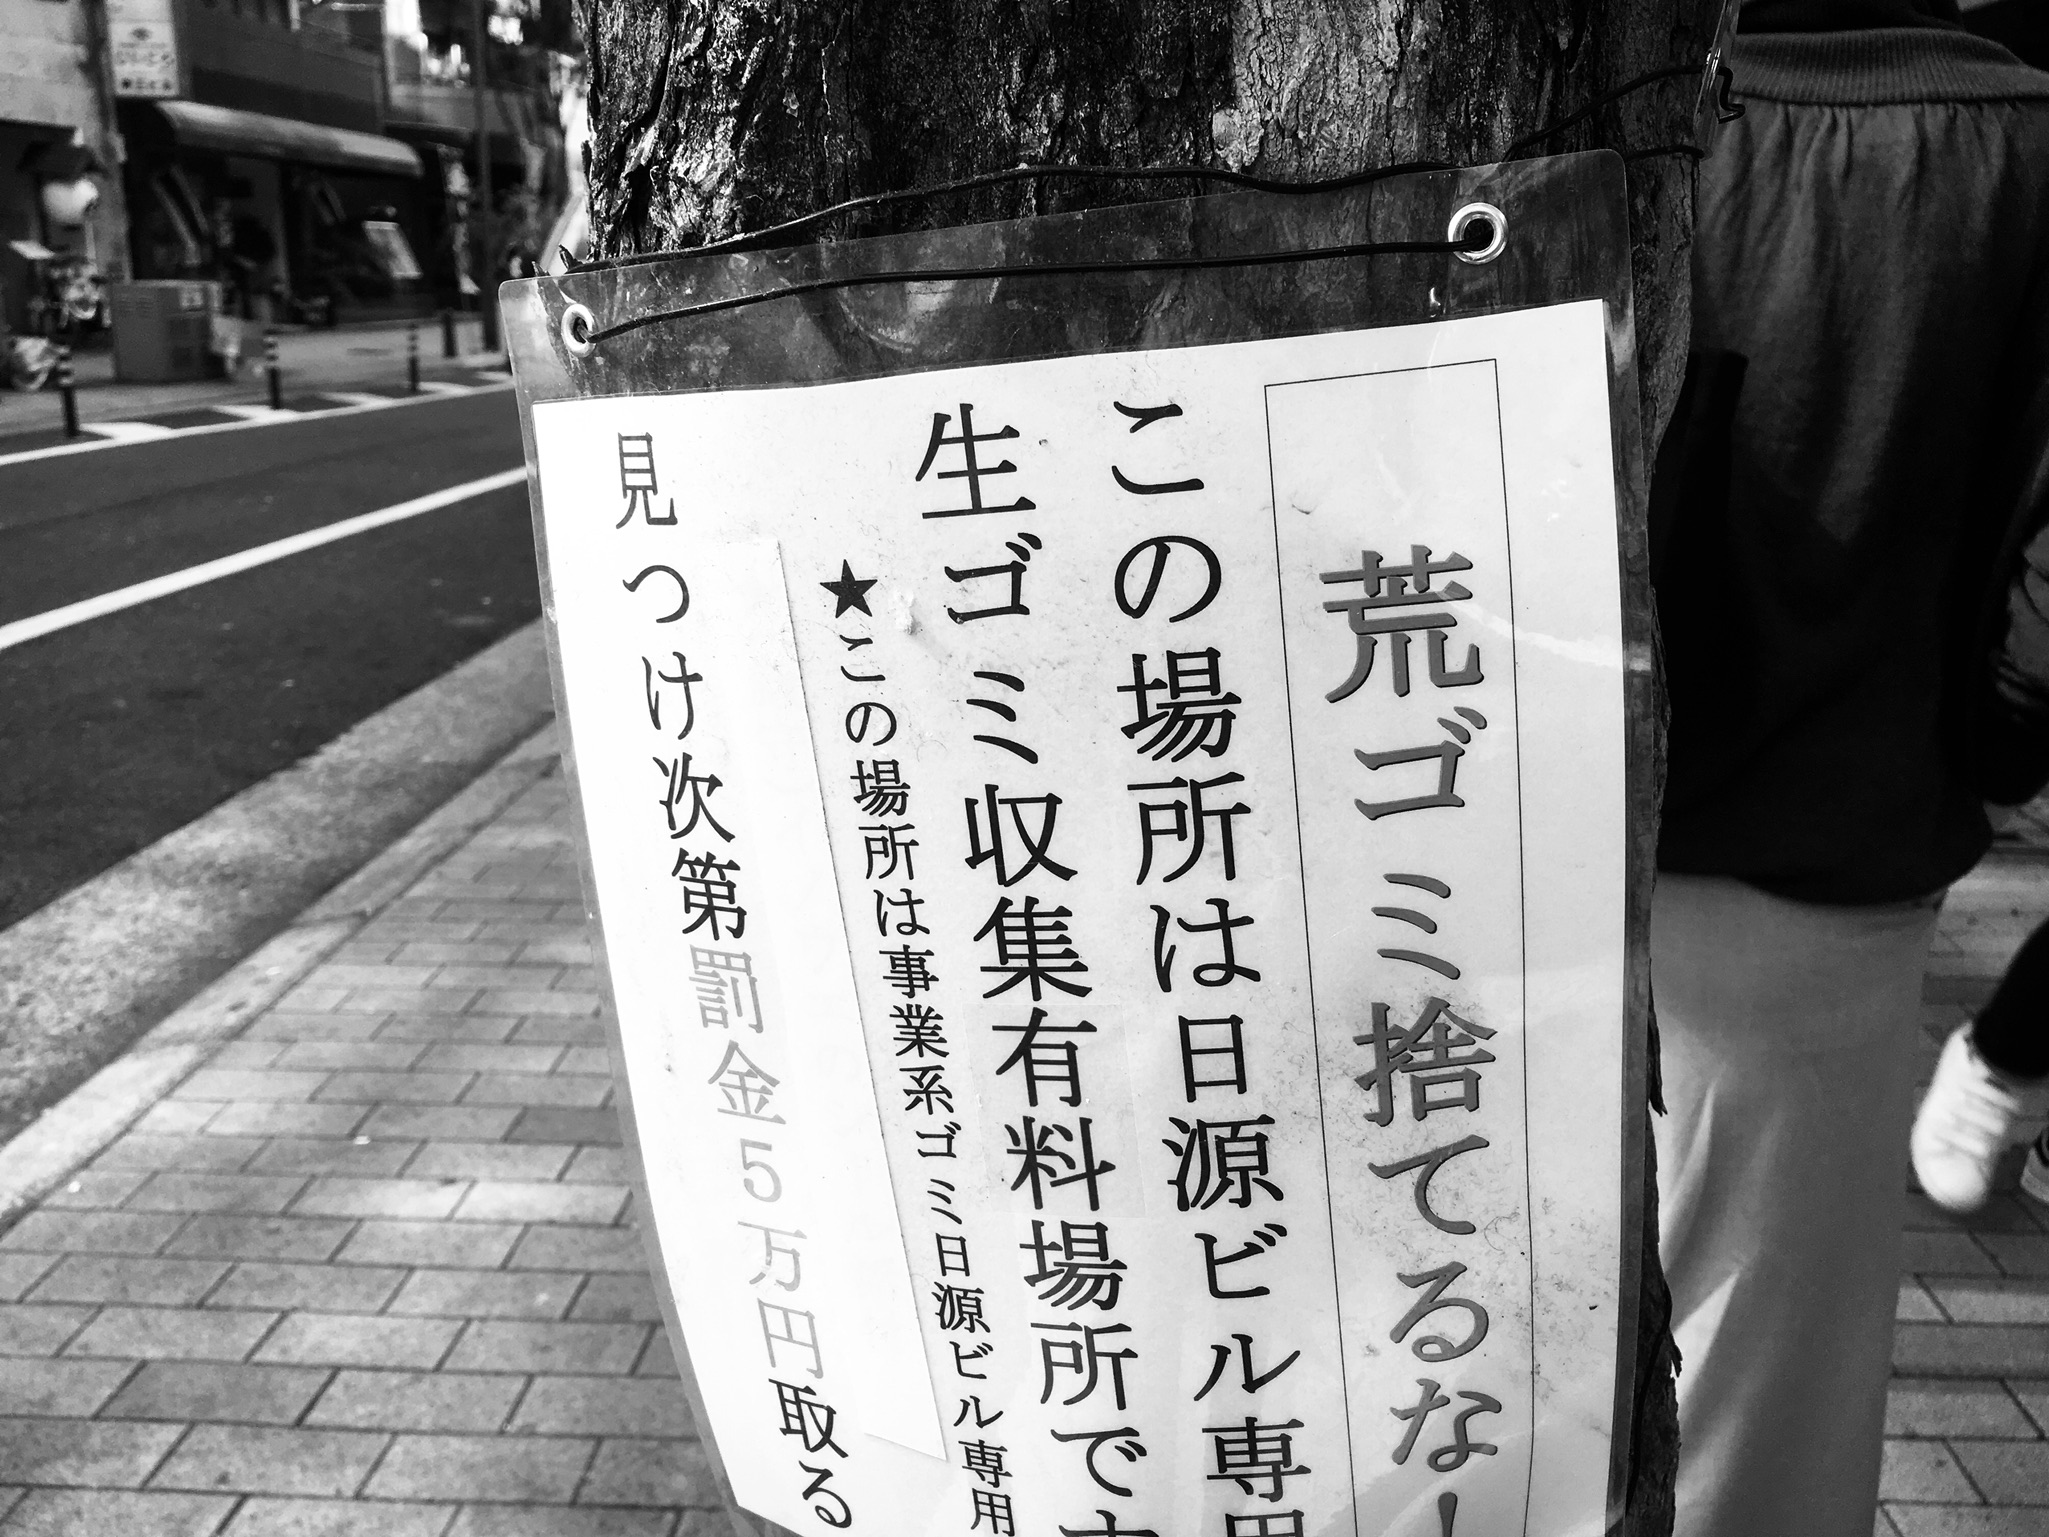 荒ゴミ捨てるな！
この場所は日源ビル専用
生ゴミ収集有料場所です
★この場所は事業系ゴミ日源ビル専用
見つけ次第罰金5万円取る